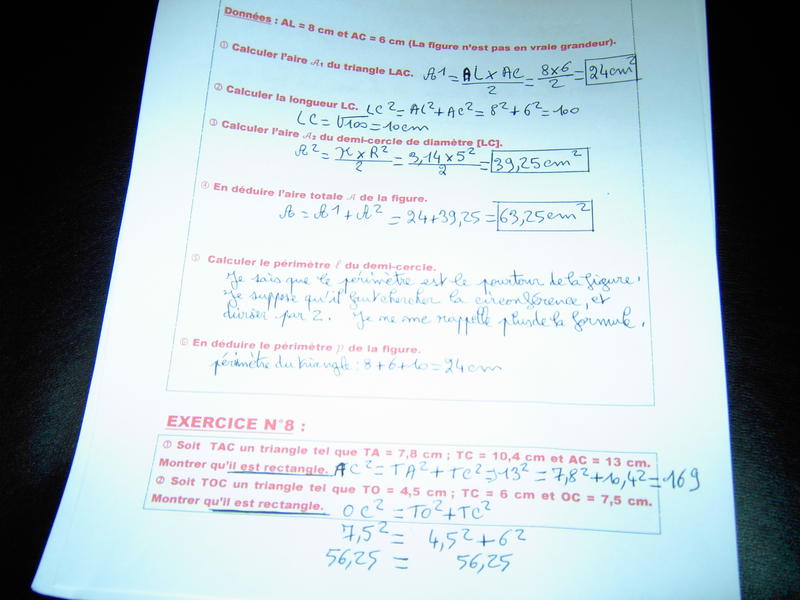 Données : AL = 8 cm et AC = 6 cm (La figure n'est pas en vraie grandeur).
① Calculer l'aire A₁ du triangle LAC. A1 = AL x AC / 2 = 8x6 / 2 = 24cm²
② Calculer la longueur LC. LC² = AL² + AC² = 8² + 6² = 100
LC = √100 = 10cm
③ Calculer l'aire A₂ du demi-cercle de diamètre [LC].
A² = π x R² / 2 = 3,14 x 5² / 2 = 39,25 cm²
④ En déduire l'aire totale A de la figure.
A = A1 + A² = 24 + 39,25 = 63,25 cm²
⑤ Calculer le périmètre ℓ du demi-cercle.
Je sais que le périmètre est le pourtour de la figure.
Je suppose qu'il faut chercher la circonférence, et
diviser par 2. Je ne me rappelle plus de la formule.
⑥ En déduire le périmètre p de la figure.
périmètre du triangle : 8 + 6 + 10 = 24 cm
EXERCICE N°8 :
① Soit TAC un triangle tel que TA = 7,8 cm ; TC = 10,4 cm et AC = 13 cm.
Montrer qu'il est rectangle. AC² = TA² + TC² = 13² = 7,8² + 10,4² = 169
② Soit TOC un triangle tel que TO = 4,5 cm ; TC = 6 cm et OC = 7,5 cm.
Montrer qu'il est rectangle. OC² = TO² + TC²
7,5² = 4,5² + 6²
56,25 = 56,25